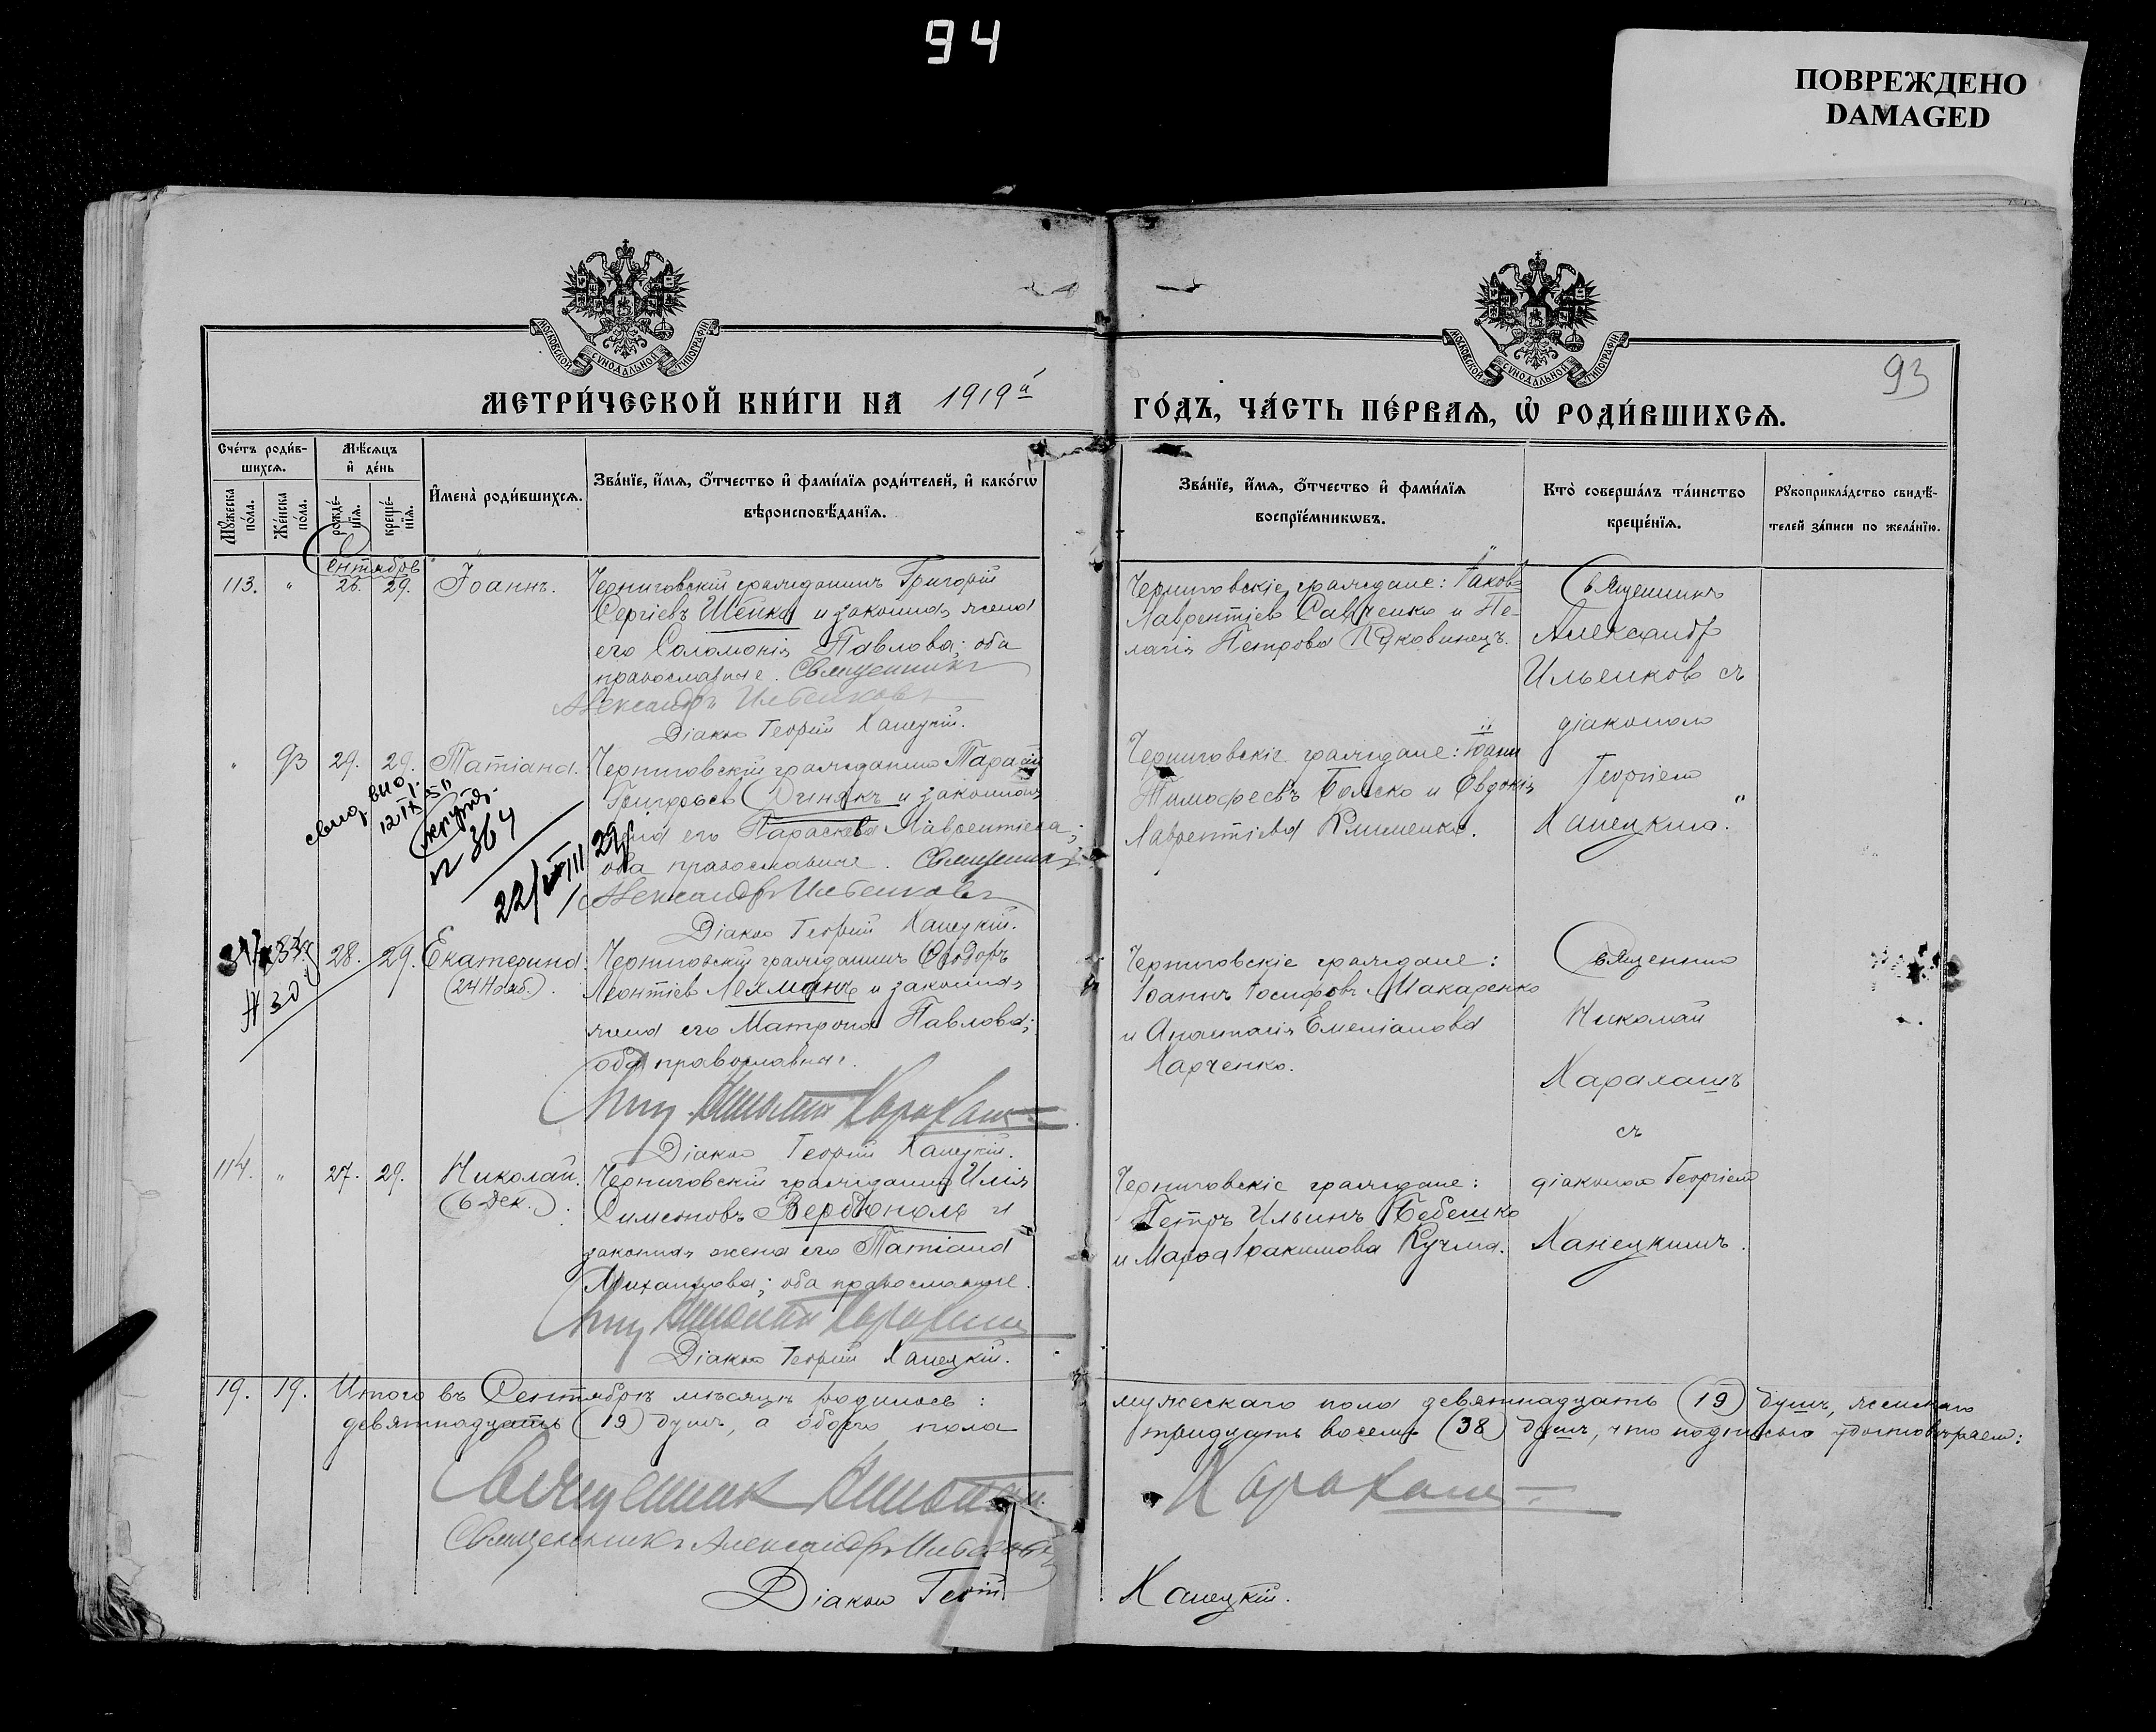 94
ПОВРЕЖДЕНО
DAMAGED
МОСКОВСКОЙ СУНОДАЛЬНОЙ ТИПОГРАФІИ
МОСКОВСКОЙ СУНОДАЛЬНОЙ ТИПОГРАФІИ
93
МЕТРИ́ЧЕСКОЙ КНИ́ГИ НА 1919й
ГО́ДЪ, ЧА́СТЬ ПЕ́РВАѦ, Ѡ҆ РОДИ́ВШИХСѦ.
Сче́тъ роди́в-
шихсѧ.
Мꙋ́жеска по́ла.
Же́нска по́ла.
Мѣ́сѧцъ
и҆ де́нь
рожде́-
нїѧ.
креще́-
нїѧ.
И҆мена̀ роди́вшихсѧ.
Зва́нїе, и҆́мѧ, ѻ҆́тчество и҆ фами́лїѧ роди́телей, и҆ како́гѡ
вѣроисповѣ́данїѧ.
Зва́нїе, и҆́мѧ, ѻ҆́тчество и҆ фами́лїѧ
воспрїе́мникѡвъ.
Кто̀ соверша́лъ та́инство
креще́нїѧ.
Рꙋкоприкла́дство свидѣ́-
телей за́писи по жела́нїю.
Сентябрь
113. " 26. 29. Іоаннъ.
Черниговскій гражданинъ Григорій
Сергіевъ и законная жена
его Соломонія Павлова; оба
православные. Священникъ
Александръ Ильенковъ
Діаконъ Георгій Ханецкій.
Черниговскіе граждане: Іаковъ
Лаврентіевъ Савченко и Пе-
лагія Петрова
Священникъ
Александр
Ильенков съ
діакономъ
Георгіем
Ханецкимъ.
" 93 29. 29. Татіана.
Черниговскій гражданинъ Тарасій
Григорьев и законная
жена его Параскева Лаврентіева;
оба православные. Священникъ
Александръ Ильенковъ
Діаконъ Георгій Ханецкій.
Черниговскіе граждане: Іоаннъ
Тимофеевъ и Евдокія
Лаврентіева Клименко.
№ 364
22/VIII 29
28. 29. Екатерина.
(24 Нояб.).
Черниговскій гражданинъ Ѳеодоръ
Леонтіев и законная
жена его Матрона Павлова;
оба православные.
Діаконъ Георгій Ханецкій.
Черниговскіе граждане:
Іоаннъ Іосифовъ Макаренко
и Анастасія Емеліанова
Харченко.
Священник
Николай
Карахашъ
съ
діакономъ Георгіем
Ханецкимъ.
114. " 27. 29. Николай.
(6 Дек.).
Черниговскій гражданинъ Илія
Симеоновъ и
законная жена его Татіана
Михаилова; оба православные.
Діаконъ Георгій Ханецкій.
Черниговскіе граждане:
Петръ Ильинъ Бебешко
и Марѳа Іоакимова Кучма.
19. 19. Итого въ Сентябрѣ мѣсяцѣ родилось:
мужескаго пола девятнадцать (19) душъ, женскаго
девятнадцать (19) душъ, а обоего пола
тридцать восемь (38) душъ, что подписью удостовѣряем:
Священник Николай
Карахашъ
Священникъ Александръ Ильенковъ
Діаконъ Георгій
Ханецкій.